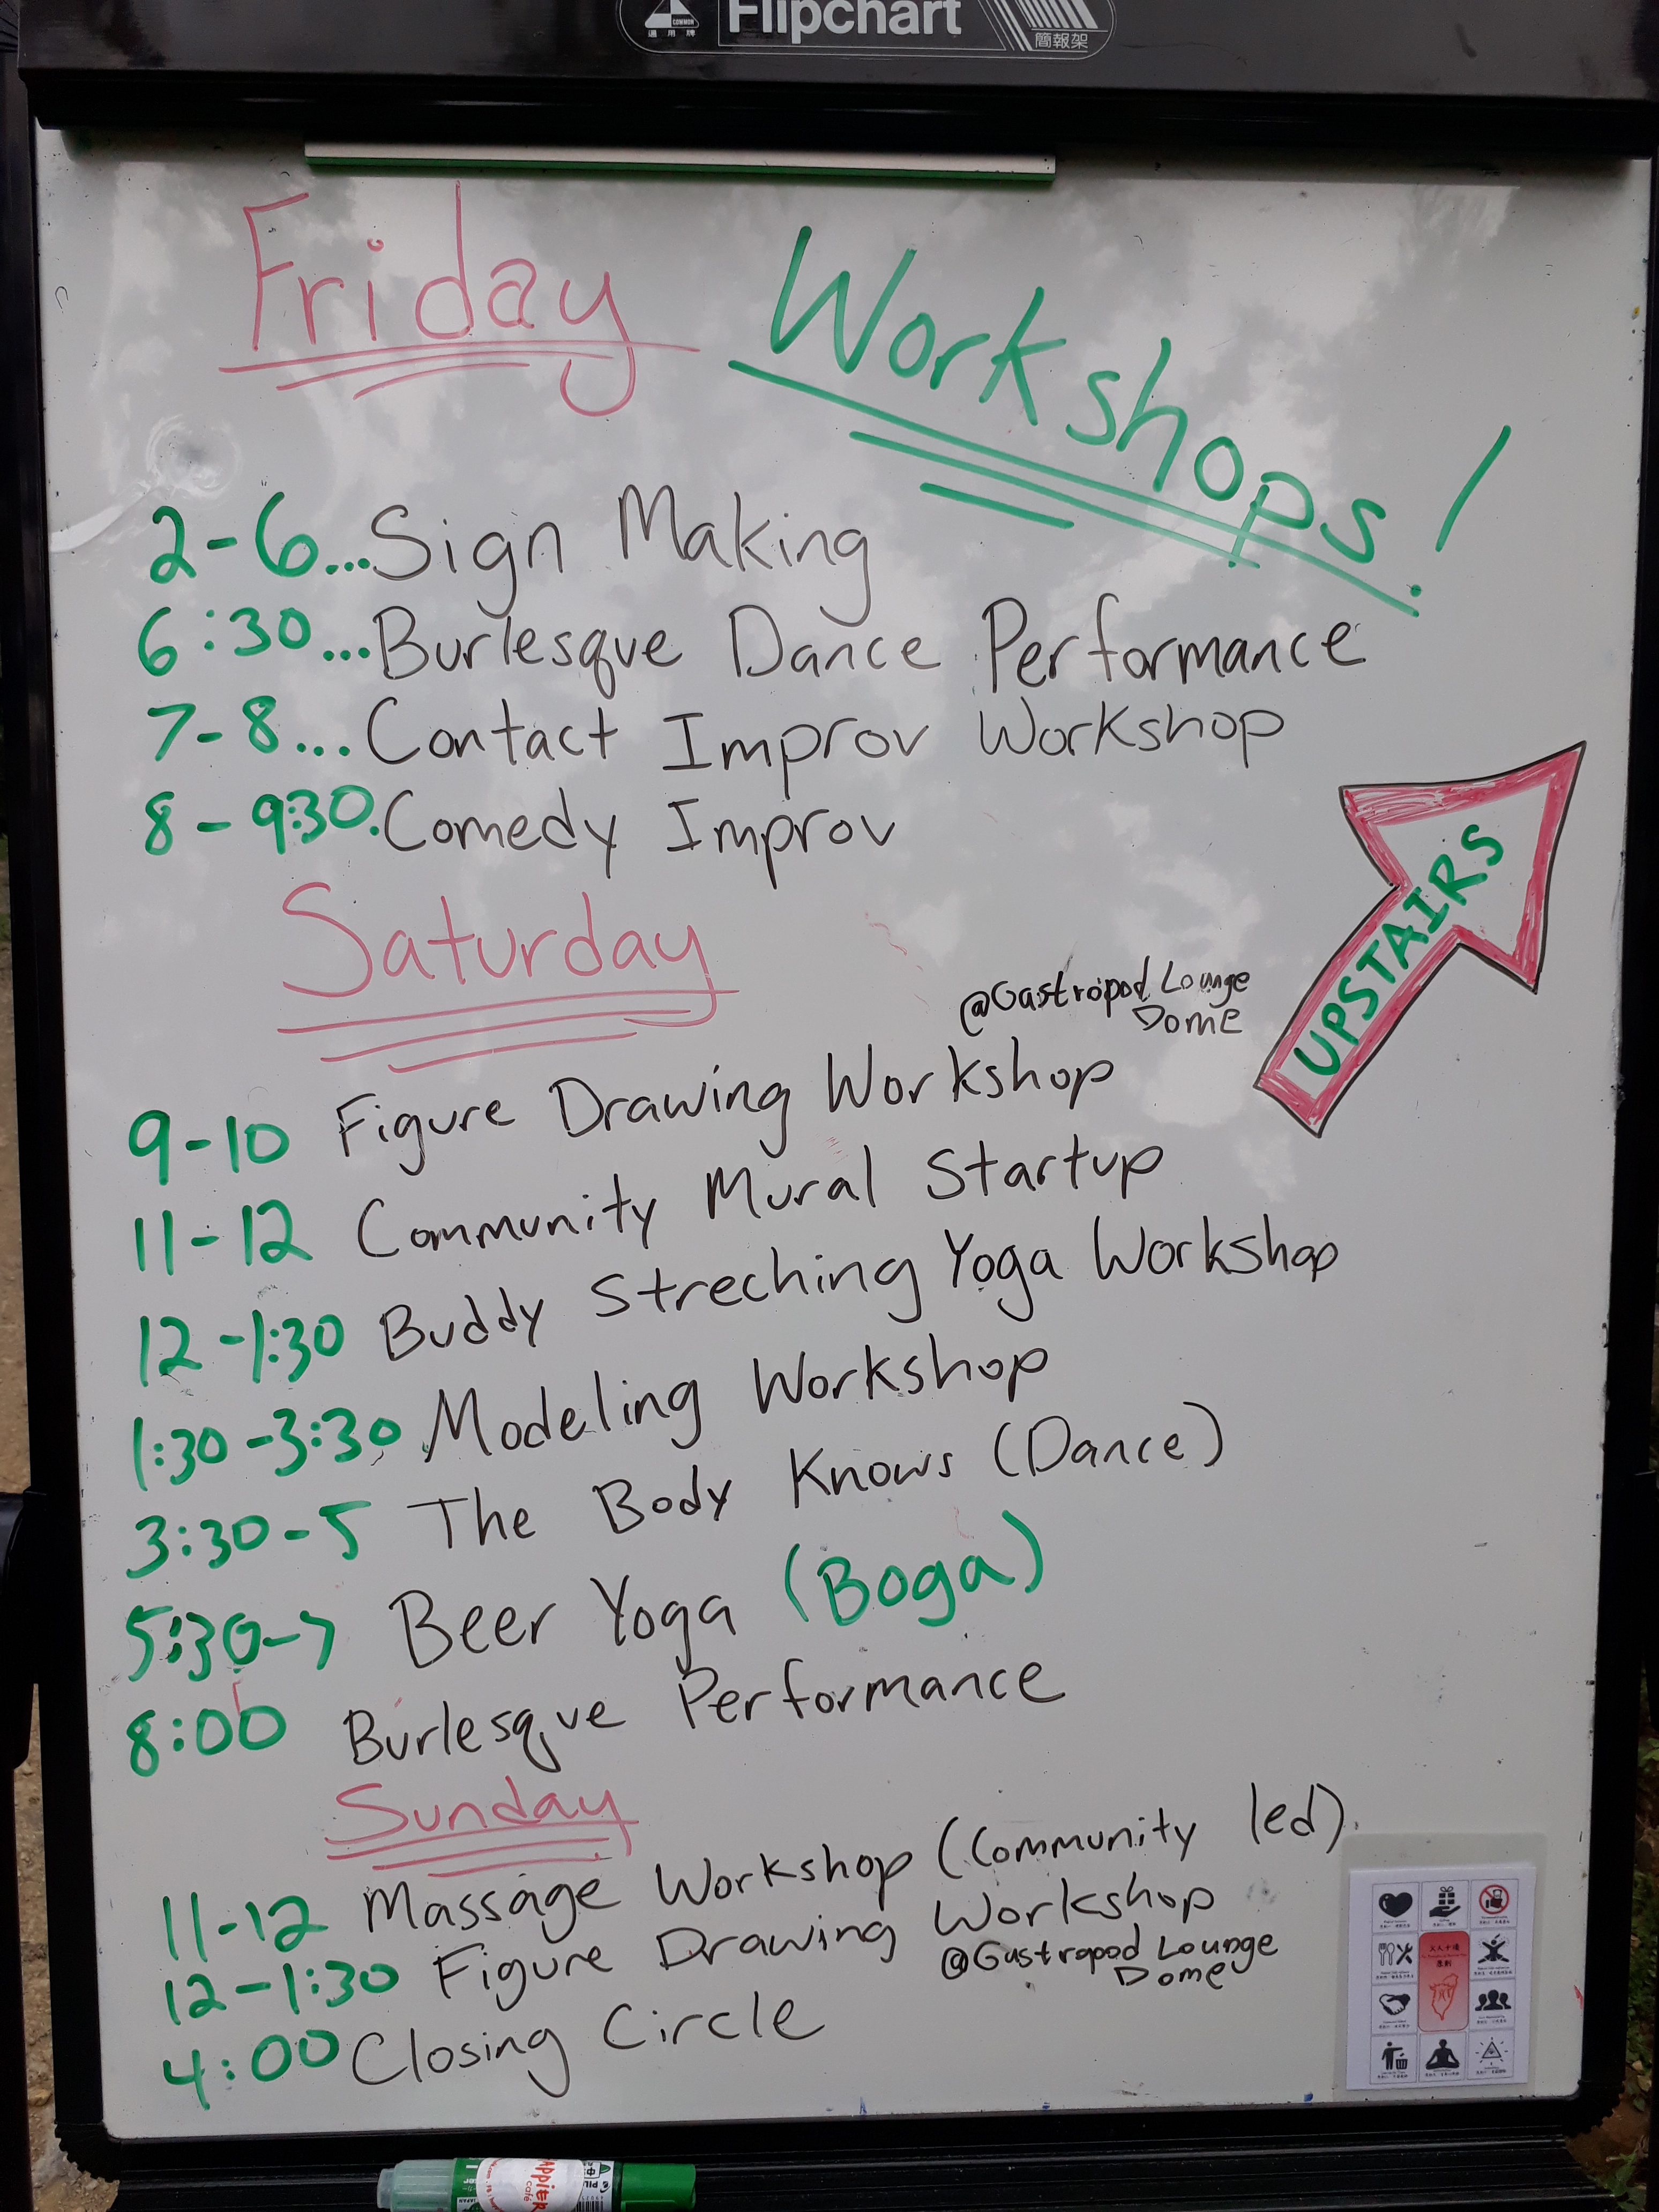 Flipchart
COMMON
通用牌
簡報架
Friday
Workshops!
2-6...Sign Making
6:30...Burlesque Dance Performance
7-8...Contact Improv Workshop
8-9:30.Comedy Improv
UPSTAIRS
Saturday
@Gastropod Lounge
Dome
9-10 Figure Drawing Workshop
11-12 Community Mural Startup
12-1:30 Buddy Streching Yoga Workshop
1:30-3:30 Modeling Workshop
3:30-5 The Body Knows (Dance)
5:30-7 Beer Yoga (Boga)
8:00 Burlesque Performance
Sunday
11-12 Massage Workshop (Community led)
12-1:30 Figure Drawing Workshop
@Gastropod Lounge
Dome
4:00 Closing Circle
APPLER
café